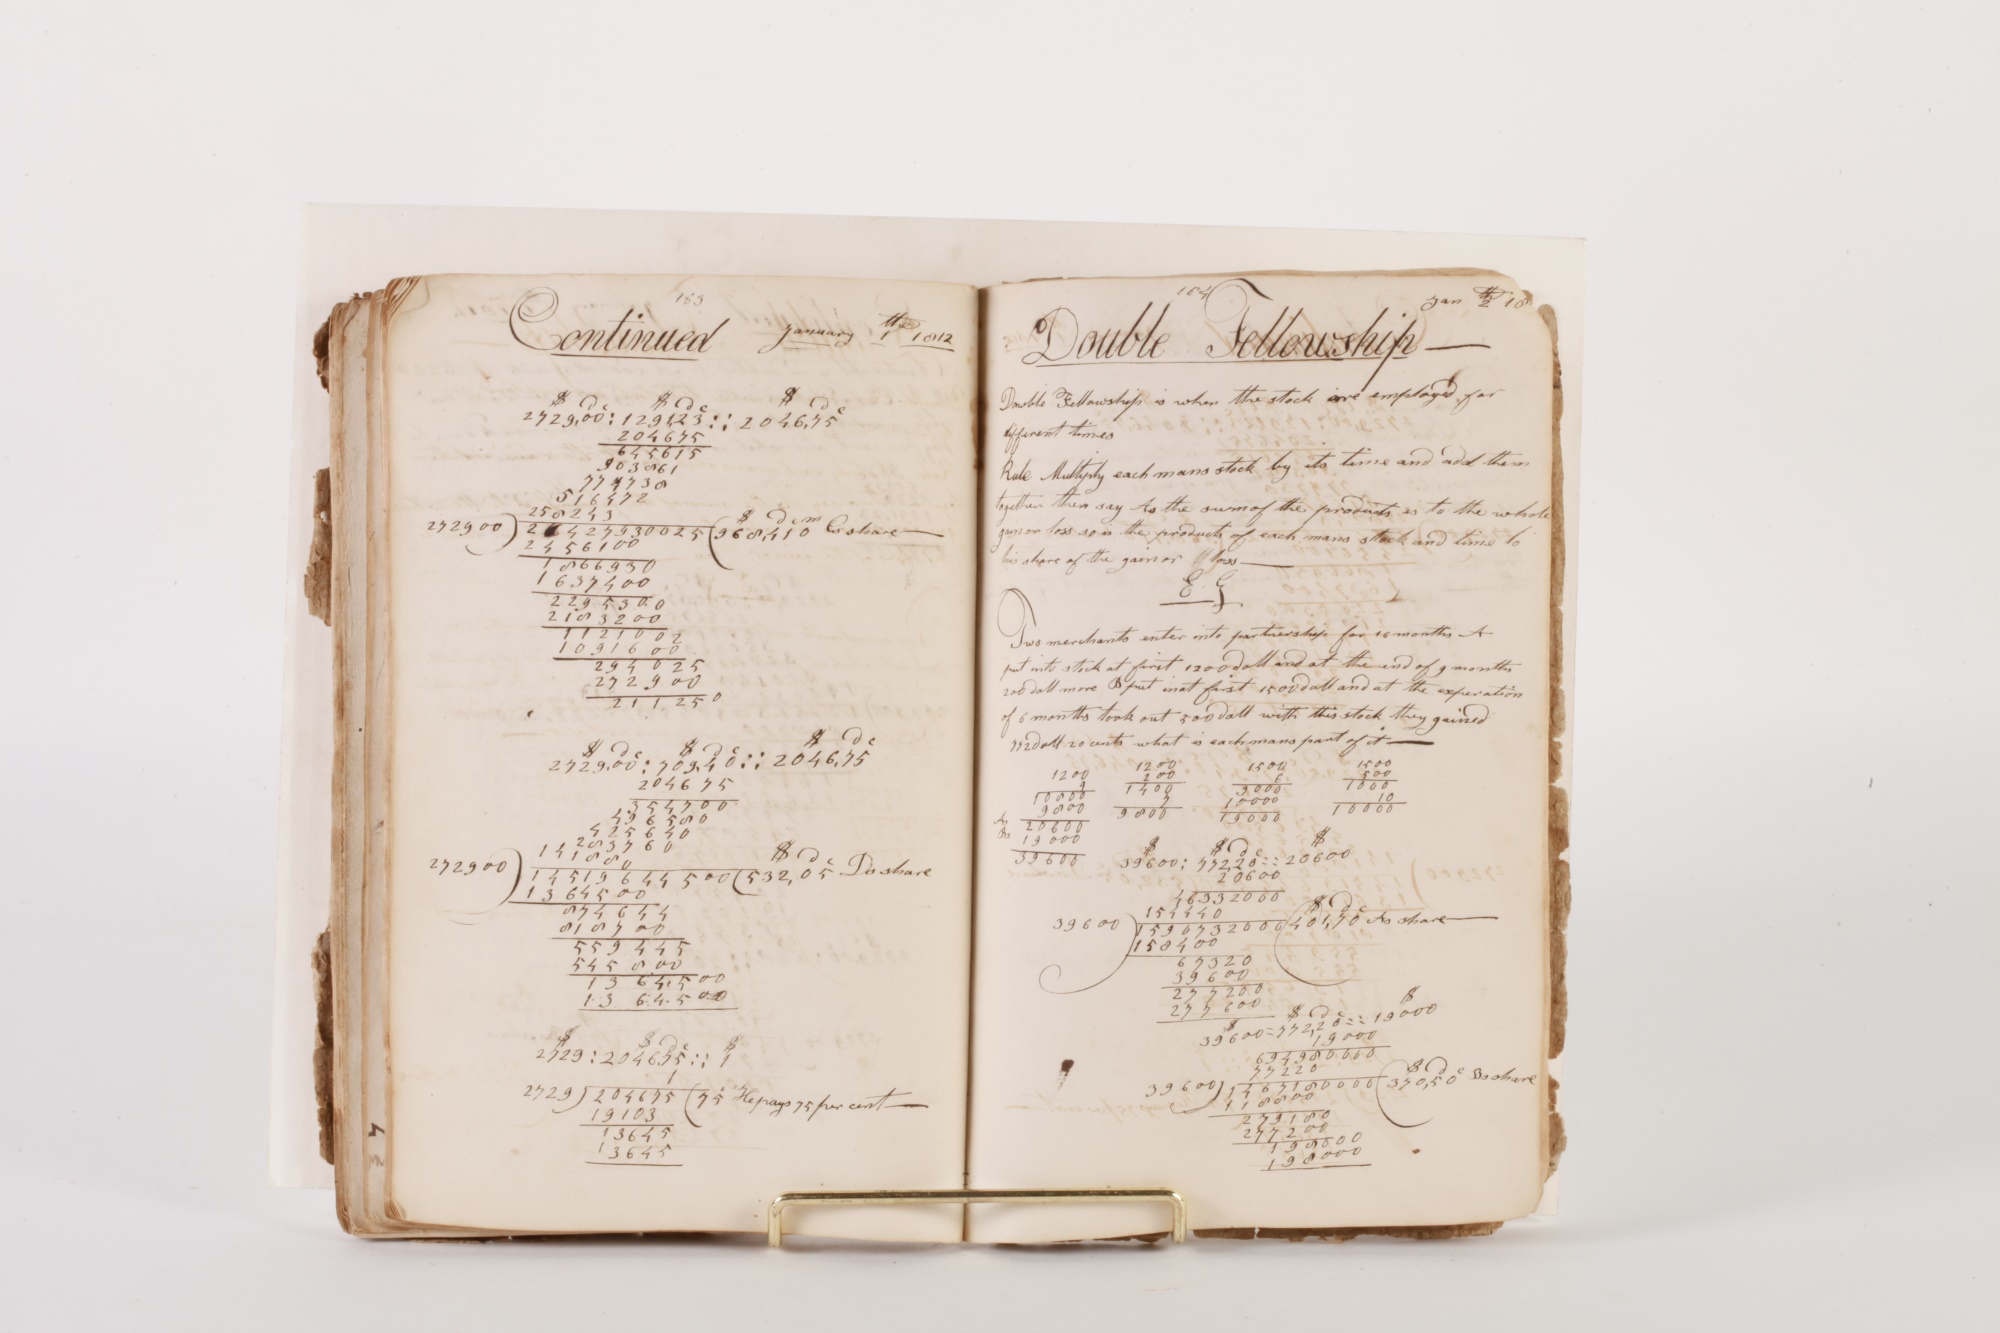 183
Continued January 1th 1812
$ d c $ d c $ d c
2729,00 : 1291,23 :: 2046,75
204675
645615
903861
774738
516472
258243
272900 ) 26427930025 ( 968,410 Cs share
$ d c m
2456100
1866930
1637400
2295300
2183200
1121002
1091600
294025
272900
211250
$ d c $ d c $ d c
2729,00 : 709,40 :: 2046,75
204675
354700
496580
425640
283760
141880
272900 ) 14519644500 ( 532,05 Ds share
$ d c
1364500
874644
818700
559445
545800
1364500
1364500
$ $ d c $
2729 : 204675 :: 1
1
2729 ) 204675 ( 75 He pays 75 per cent
19103
13645
13645
184
Jan 2th 18
Double Fellowship
Double Fellowship is when the stock are employed for
different times
Rule Multiply each mans stock by its time and add them
together then say As the sum of the products is to the whole
gain or loss so is the products of each mans stock and time to
his share of the gain or loss
E G
Two merchants enter into partnership for 16 months A
put into stock at first 1200 doll and at the end of 9 months
200 doll more B put in at first 1500 doll and at the experation
of 6 months took out 500 doll with this stock they gained
772 doll 20 cents what is each mans part of it
1200 1200 1500 1500
9 200 6 500
10800 1400 9000 1000
9800 7 10000 10
As 20600 9800 19000 10000
Bs 19000
39600
$ $ d c $
39600 : 772,20 :: 20600
20600
46332000
154440
39600 ) 1590732000 ( 401,70 As share
$ d c
158400
67320
39600
277200
277600
$ $ d c $
39600 = 772,20 :: 19000
19000
694980000
77220
39600 ) 1467180000 ( 370,50 Bs share
$ d c
118800
279180
277200
198000
198000